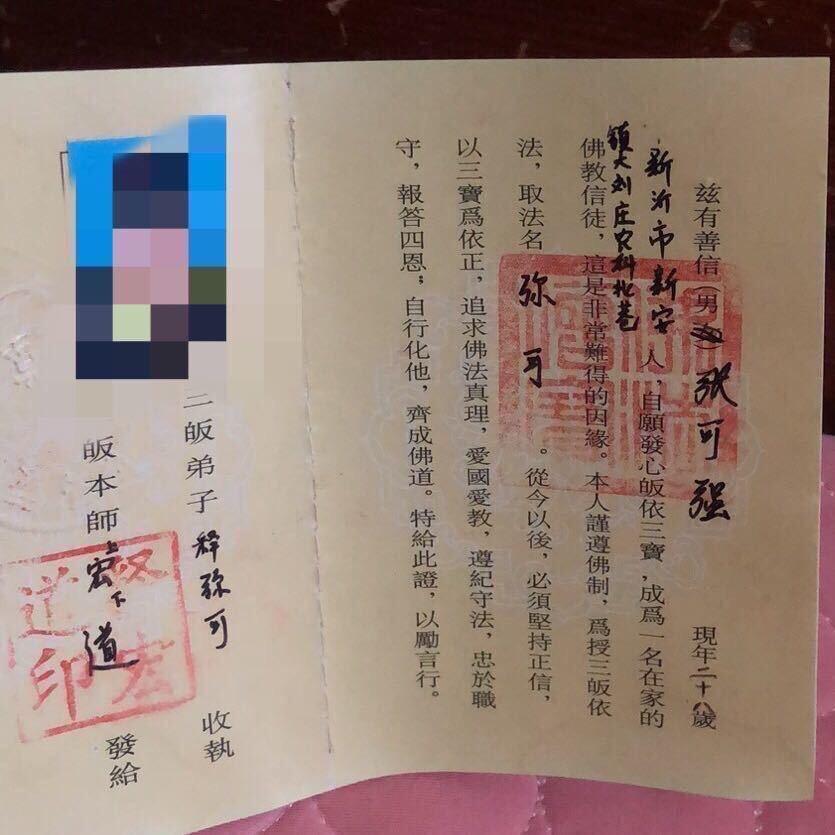 茲有善信（男女）张可强 現年二十八歲
新沂市新安
镇大刘庄农科北巷
人，自願發心皈依三寶，成爲一名在家的
佛教信徒，這是非常難得的因緣。本人謹遵佛制，爲授三皈依
法，取法名 弥可 。從今以後，必須堅持正信，
以三寶爲依正，追求佛法真理，愛國愛教，遵紀守法，忠於職
守，報答四恩；自行化他，齊成佛道。特給此證，以勵言行。
三皈弟子 释弥可 收執
皈本師 上宏下道 發給
宏
道印